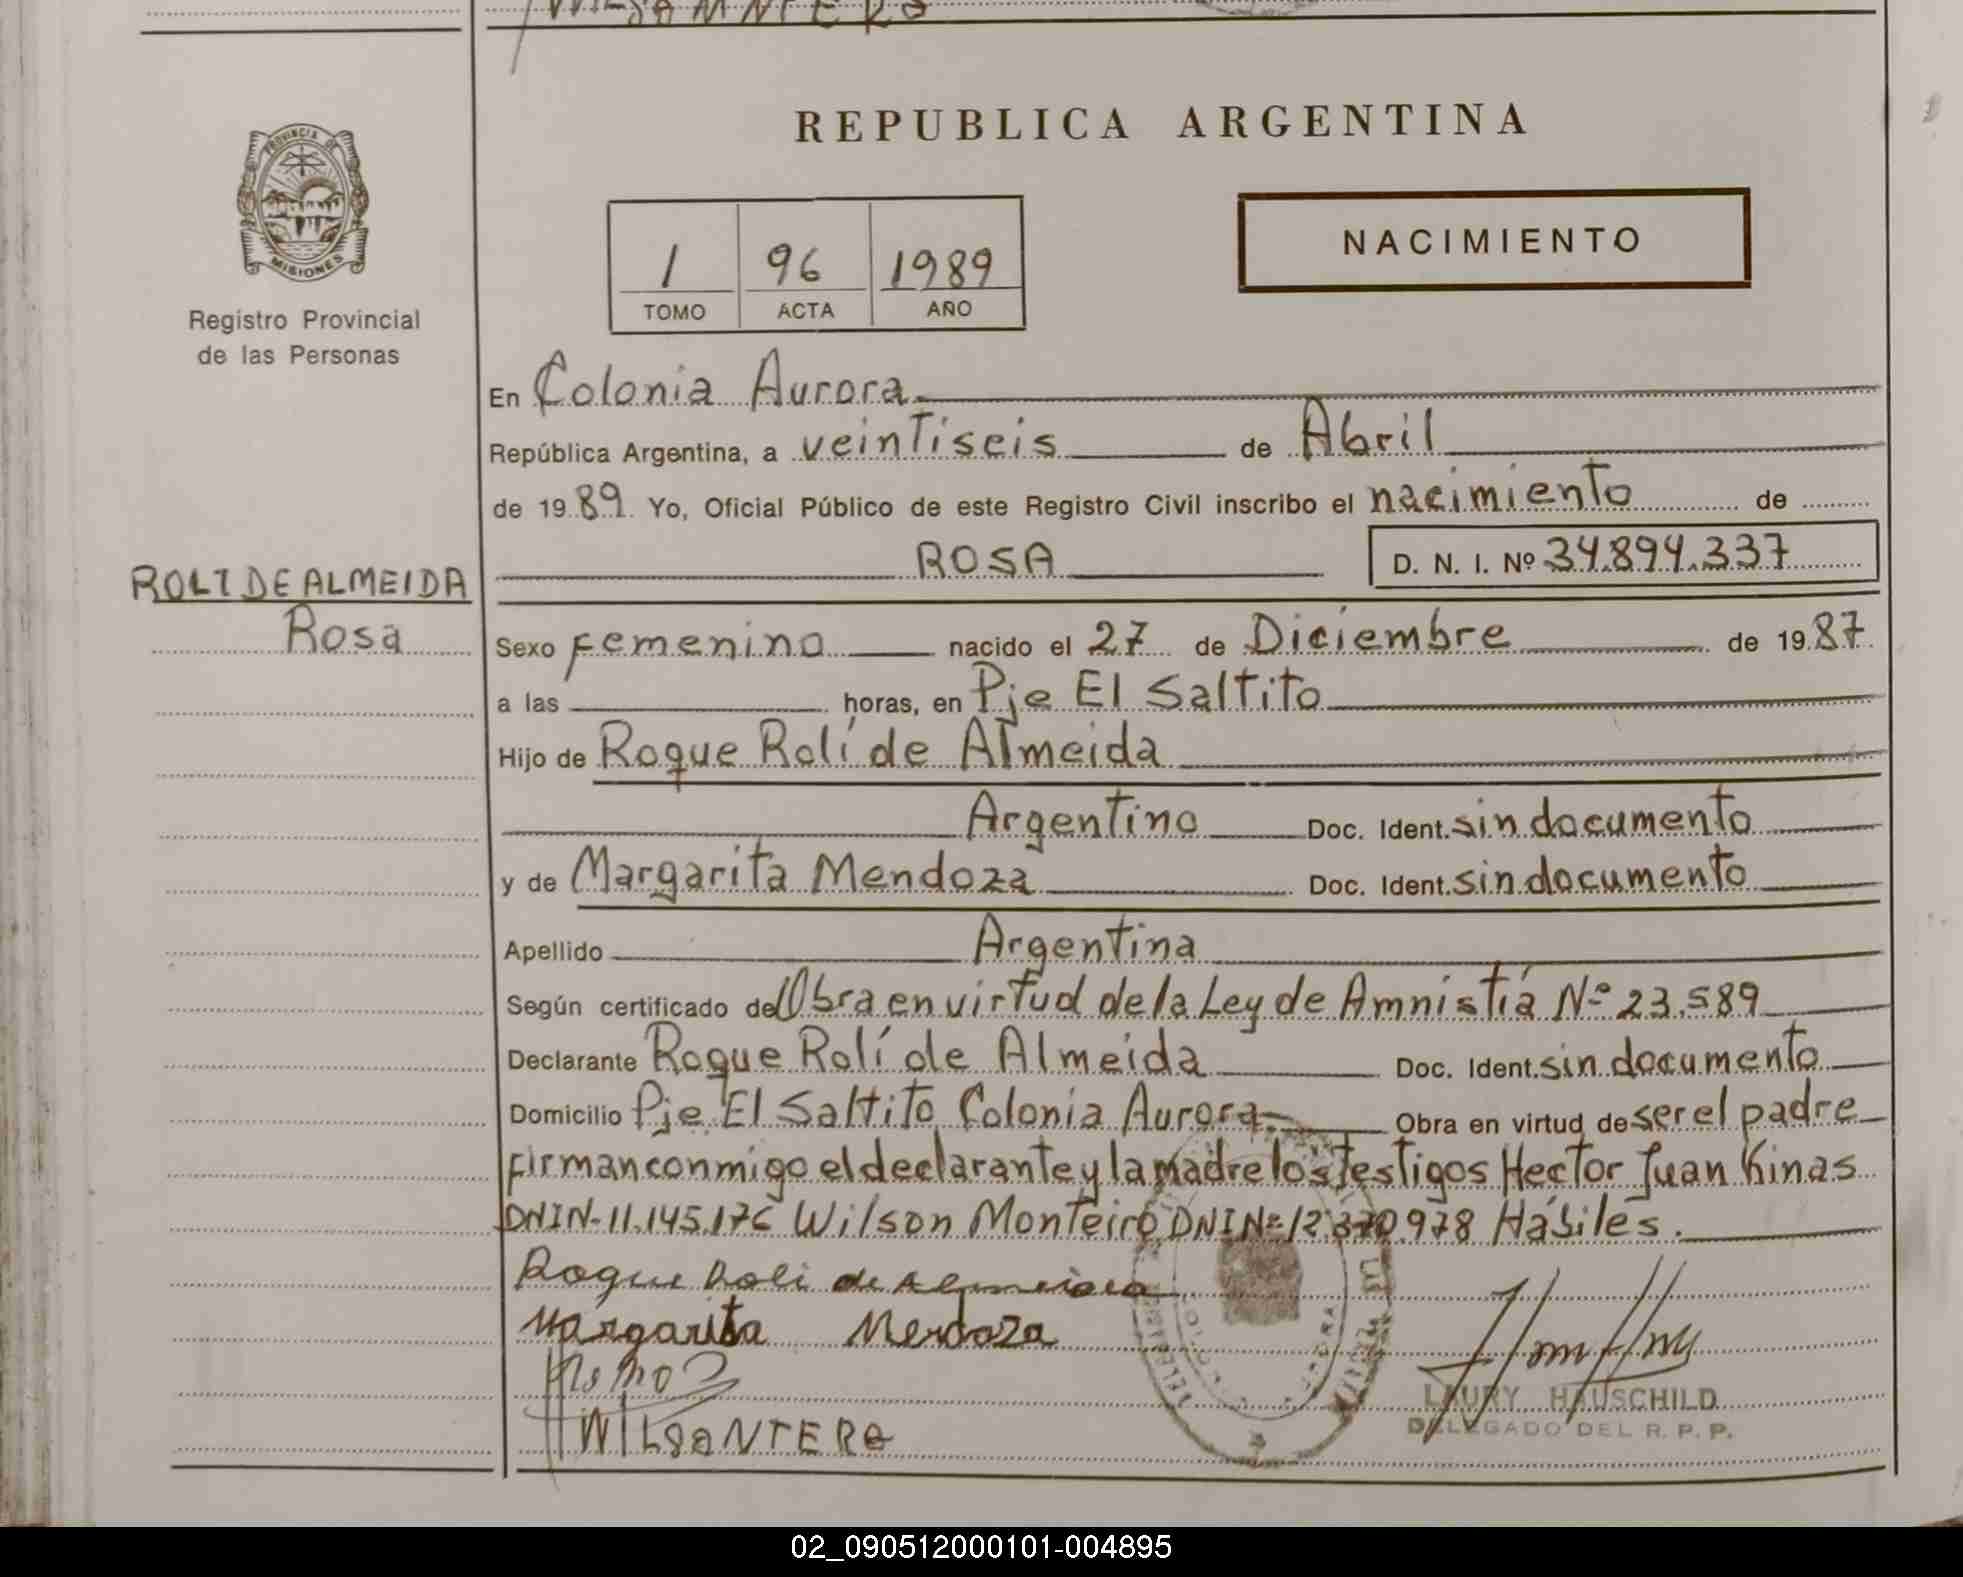 REPUBLICA ARGENTINA
PROVINCIA DE MISIONES
Registro Provincial
de las Personas
1 96 1989
TOMO ACTA AÑO
NACIMIENTO
En Colonia Aurora
República Argentina, a veintiseis de Abril
de 1989 Yo, Oficial Público de este Registro Civil inscribo el nacimiento de
ROSA D. N. I. Nº 34.894.337
ROLI DE ALMEIDA
Rosa
Sexo Femenino nacido el 27 de Diciembre de 1987
a las horas, en Pje El Saltito
Hijo de Roque Rolí de Almeida
Argentino Doc. Ident. sin documento
y de Margarita Mendoza Doc. Ident. sin documento
Apellido Argentina
Según certificado de Obra en virtud de la Ley de Amnistía Nº 23.589
Declarante Roque Rolí de Almeida Doc. Ident. sin documento
Domicilio Pje El Saltito Colonia Aurora. Obra en virtud de ser el padre
firman conmigo el declarante y la madre los testigos Hector Juan Kinas
DNI N- 11.145.176 Wilson Monteiro DNI Nº 12.370.978 Hábiles.
Roque Roli de Almeida
Margarita Mendoza
WILSONTERO
LAURY HAUSCHILD
DELEGADO DEL R. P. P.
02_090512000101-004895